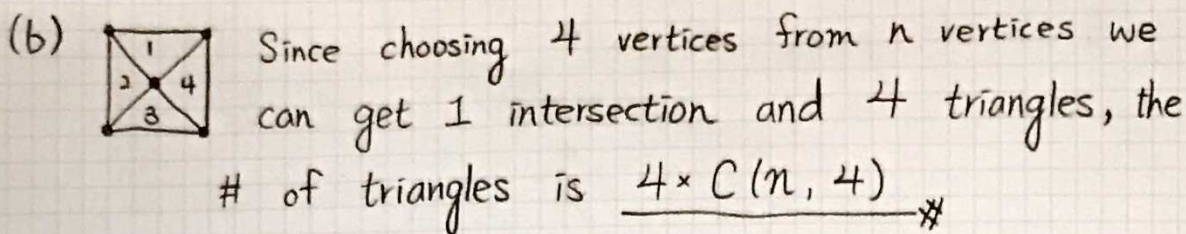 (b) 1 2 4 3 Since choosing 4 vertices from n vertices we
can get 1 intersection and 4 triangles, the
# of triangles is 4 × C(n, 4) #